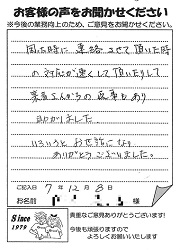 お客様の声をお聞かせください
※今後の業務向上のため、ご意見をお聞かせください。
困った時に連絡させて頂いた時
の対応が速くして頂いたりして
業者さんからの返事もあり
助かりました。
いろいろとお世話になり
ありがとうございました。
ご記入日 7年12月8日
お名前 様
Since
1979
貴重なご意見ありがとうございます!
今後も頑張りますので
よろしくお願いいたします